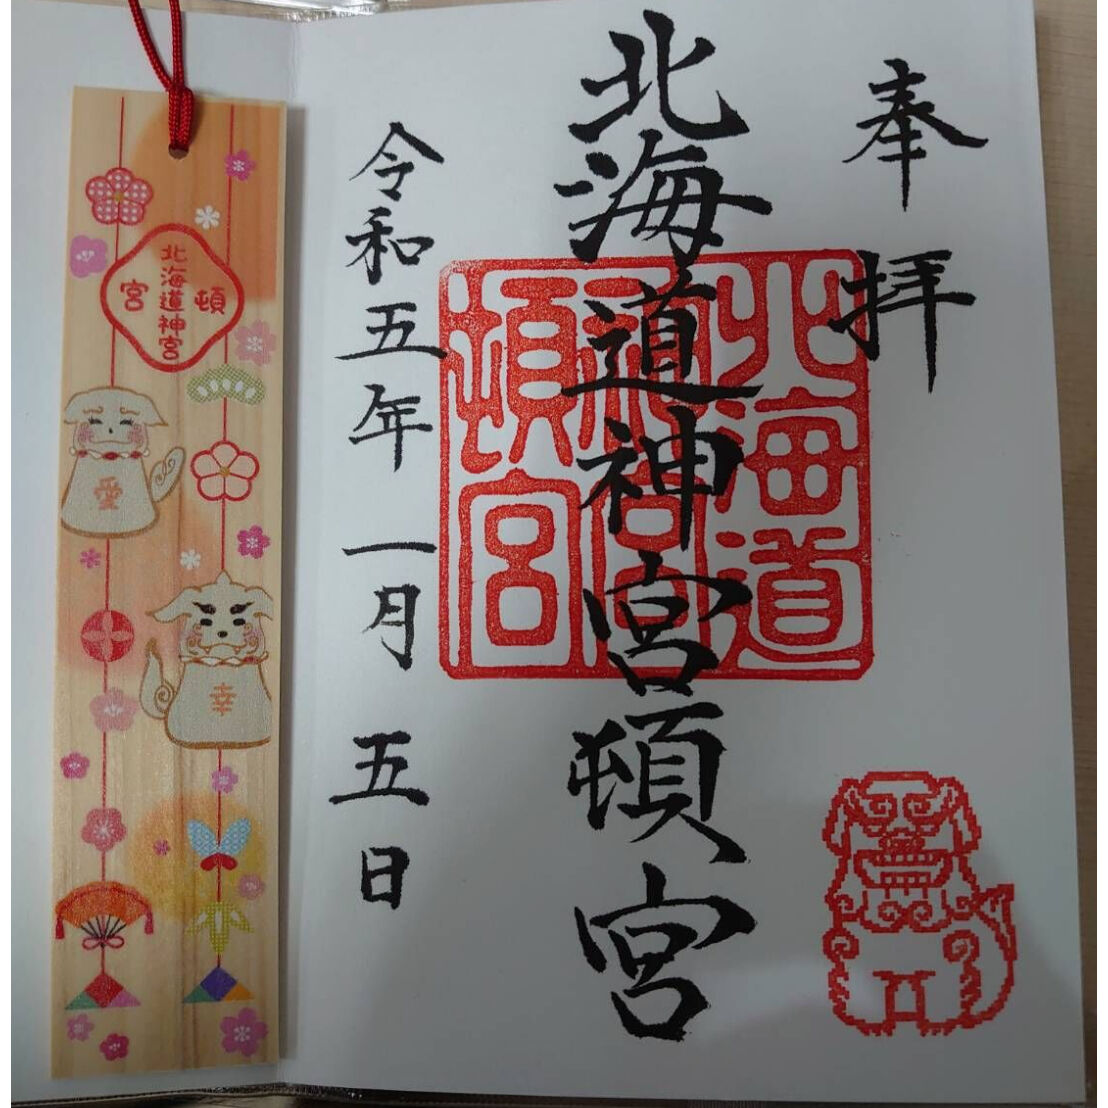 奉拝
北海道神宮頓宮
北海道
神宮
頓宮
令和五年一月五日
頓
北海道神宮
宮
愛
幸